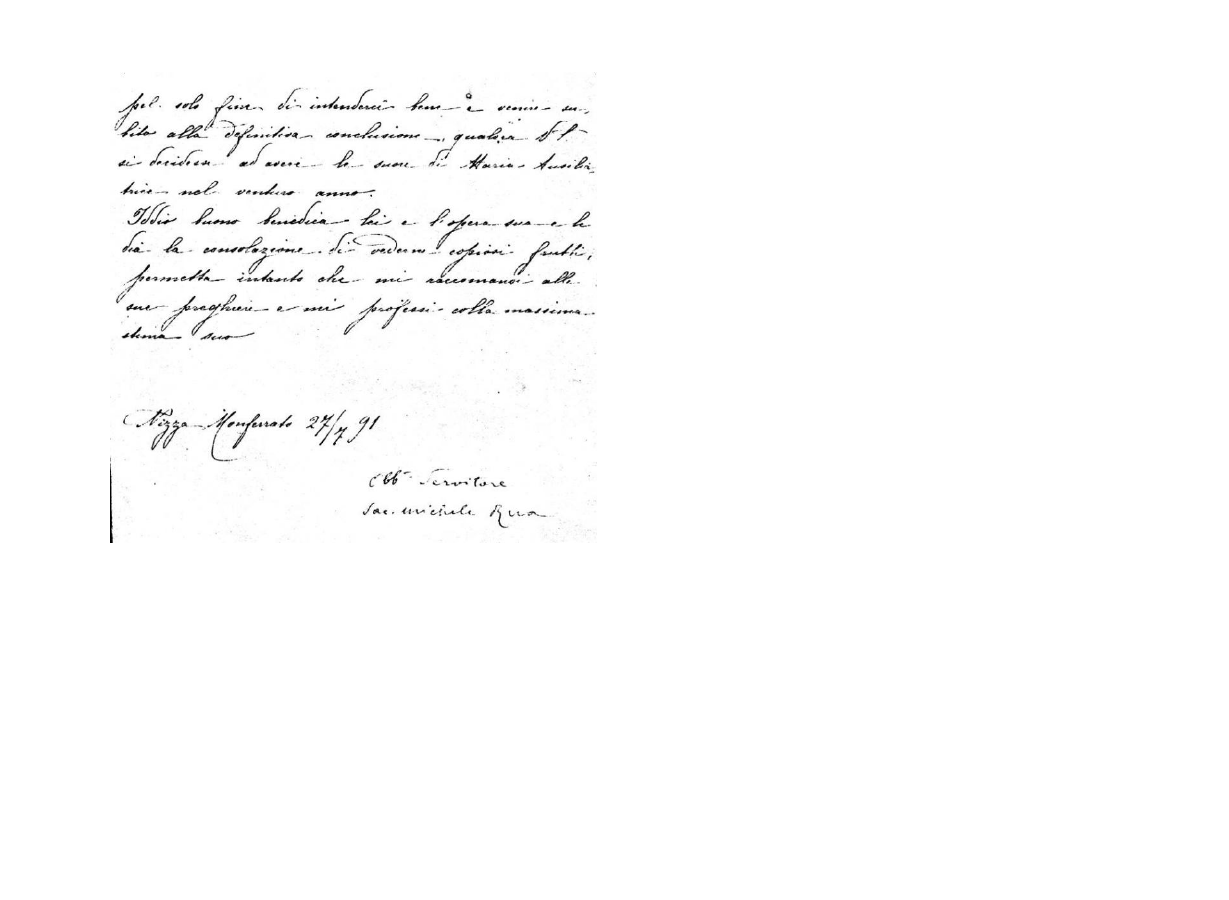 pel solo fine di intenderci bene e venire su-
bito alla definitiva conclusione, qualora
si decidesse ad avere le suore di Maria Ausilia-
trice nel venturo anno.
Iddio buono benedica lei e l'opera sua e le
dia la consolazione di vederne copiosi frutti,
permetta intanto che mi raccomandi alle
sue preghiere e mi professi colla massima
stima suo
Nizza Monferrato 27/7 91
Obb. Servitore
Sac. Michele Rua